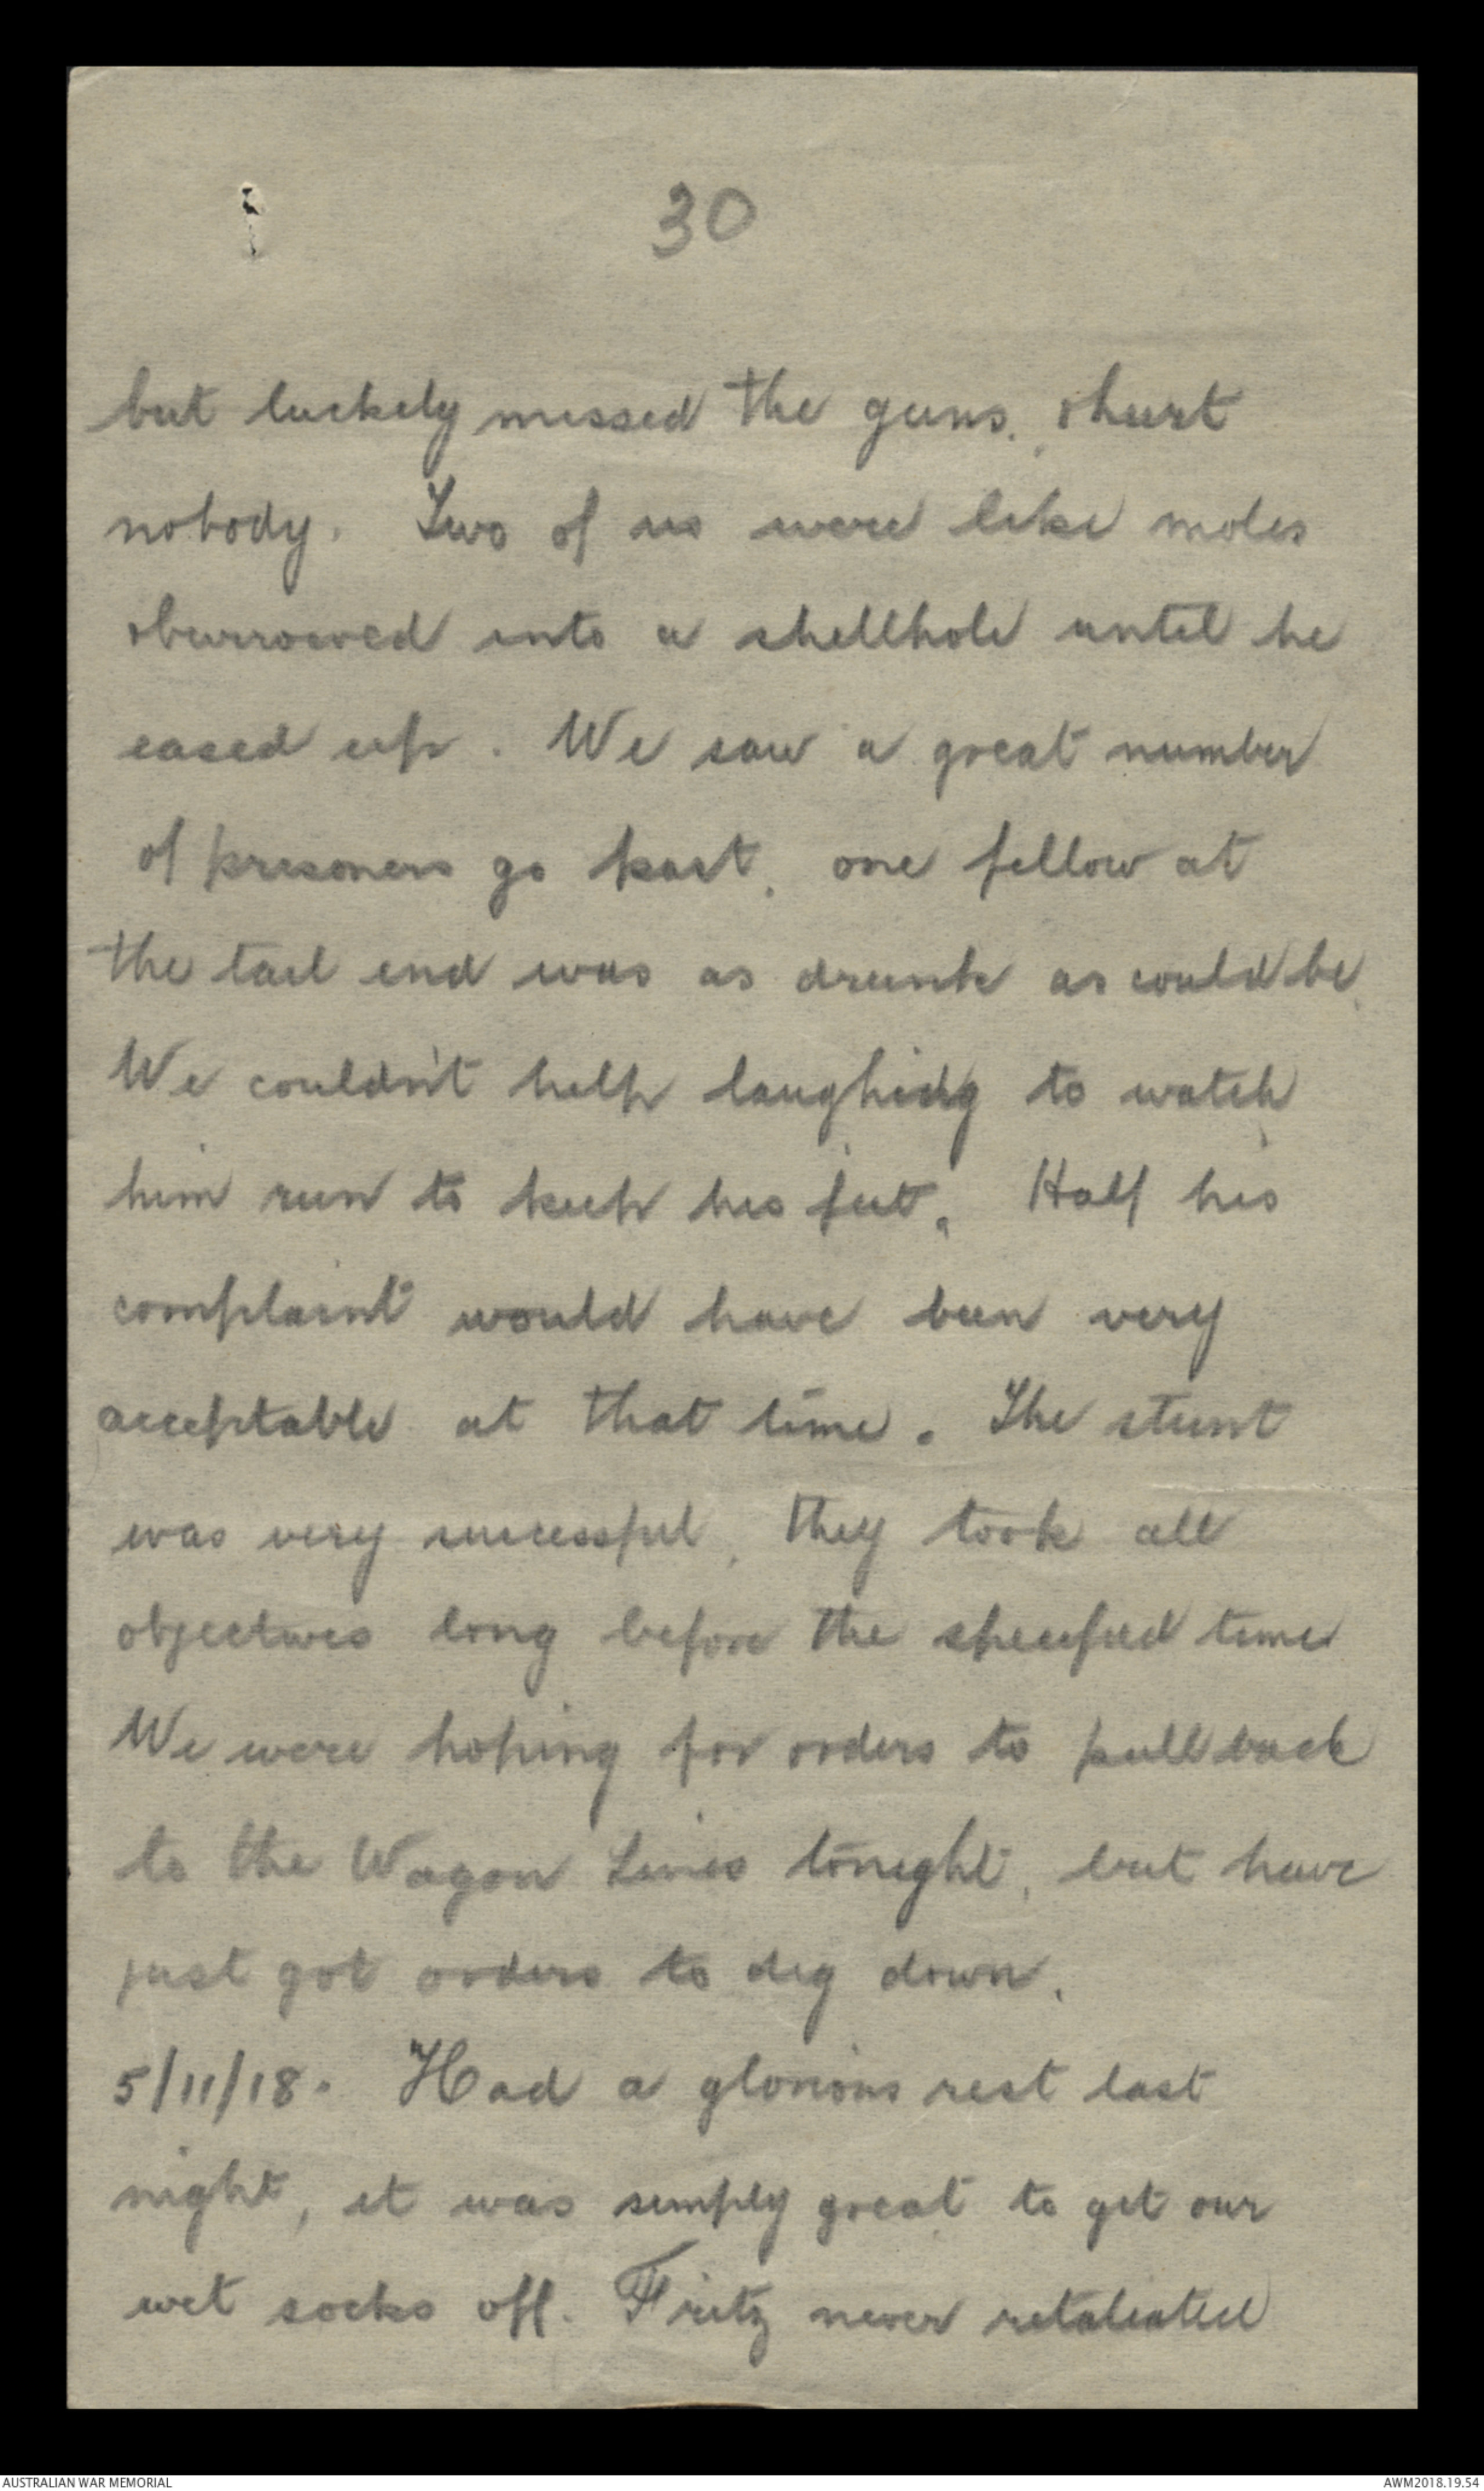 30
but luckely missed the guns, & hurt
nobody. Two of us were like moles
& burrowed into a shellhole until he
eased up. We saw a great number
of prisoners go past, one fellow at
the tail end was as drunk as could be.
We couldn't help laughing to watch
him run to keep his feet. Half his
complaint would have been very
acceptable at that time. The stunt
was very successful, they took all
objectives long before the specified time
We were hoping for orders to pull back
to the Wagon Lines tonight, but have
just got orders to dig down.
5/11/18. Had a glorious rest last
night, it was simply great to get our
wet socks off. Fritz never retaliated
AUSTRALIAN WAR MEMORIAL
AWM2018.19.54